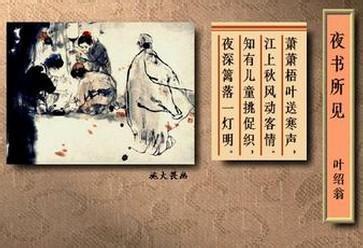 夜书所见
叶绍翁
萧萧梧叶送寒声，
江上秋风动客情。
知有儿童挑促织，
夜深篱落一灯明。
施大畏画